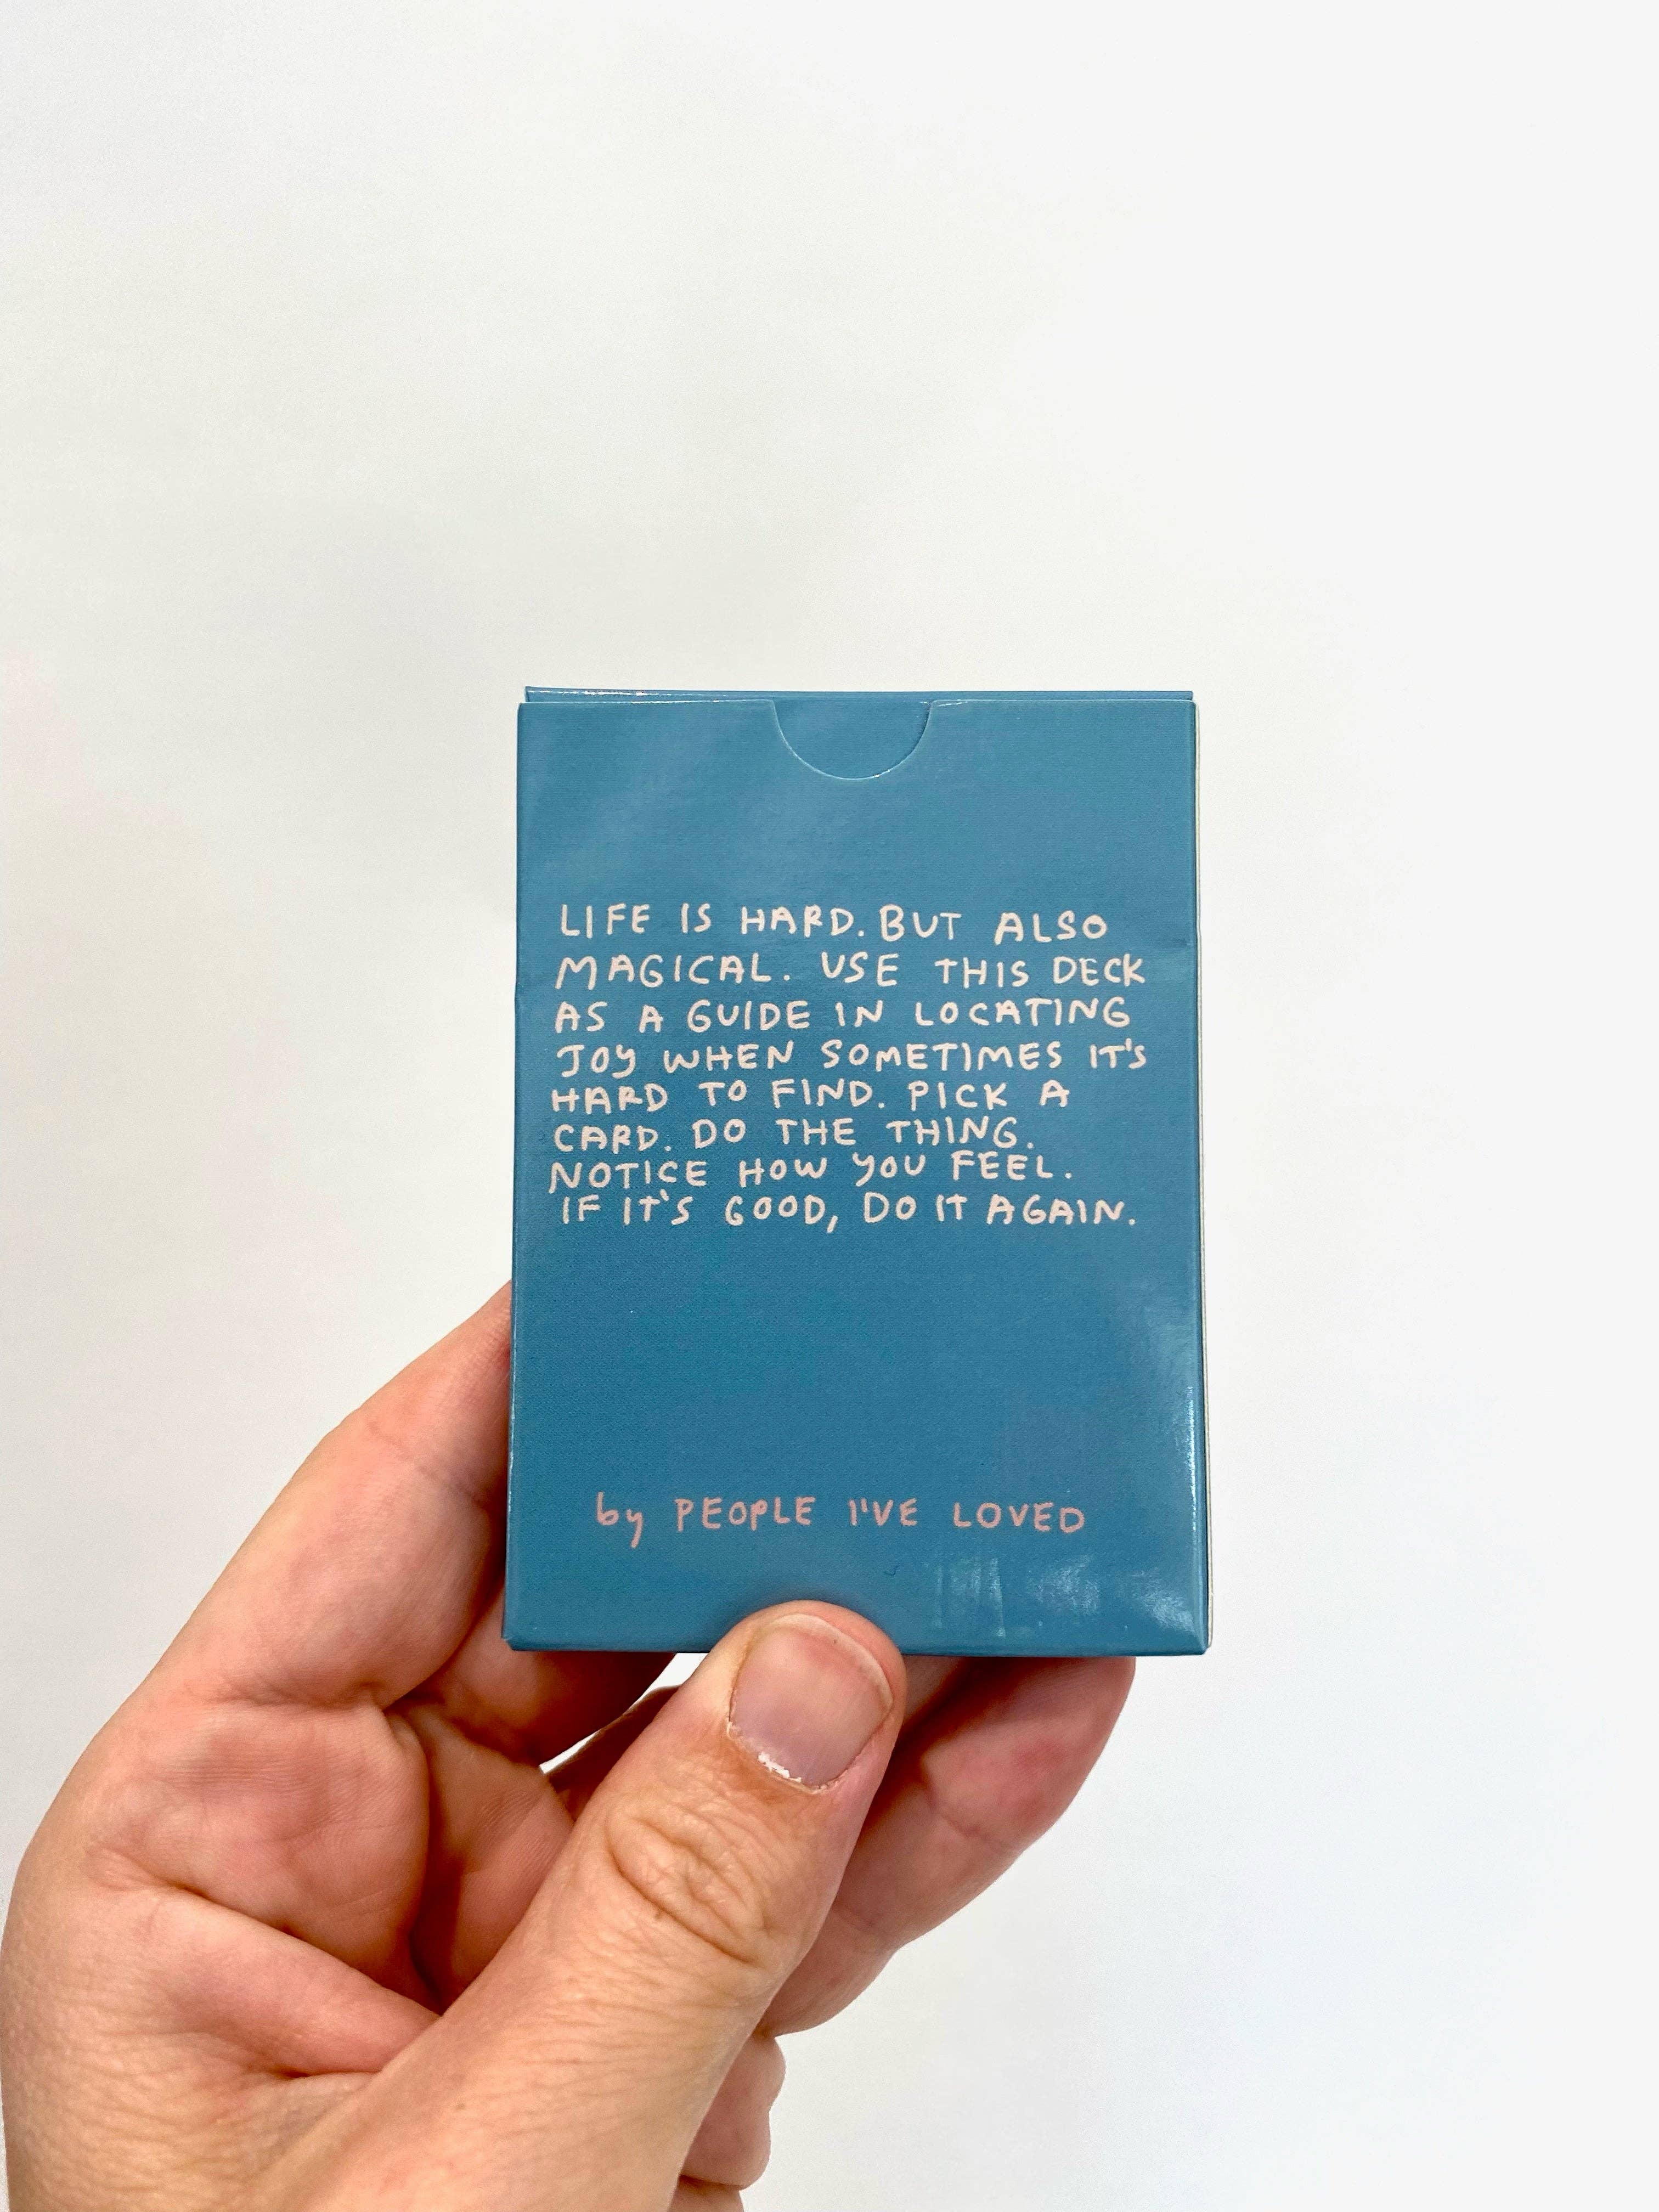 LIFE IS HARD. BUT ALSO
MAGICAL. USE THIS DECK
AS A GUIDE IN LOCATING
JOY WHEN SOMETIMES IT'S
HARD TO FIND. PICK A
CARD. DO THE THING.
NOTICE HOW YOU FEEL.
IF IT'S GOOD, DO IT AGAIN.
by PEOPLE I'VE LOVED